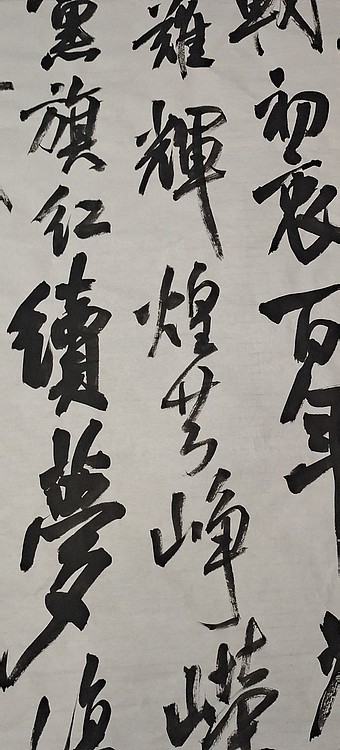 初衷百年
耀輝煌崢嶸
黨旗红續夢